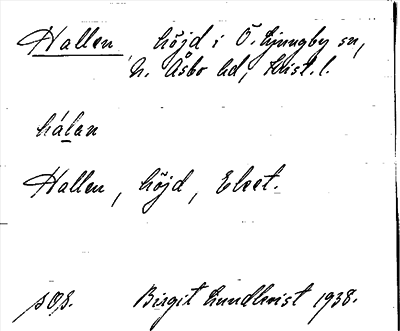 Hallen, höjd i Ö. Ljungby sn,
N. Åsbo hd, Krist. l.
hálan
Hallen, höjd, Elcet.
Birgit Lundkvist 1938.